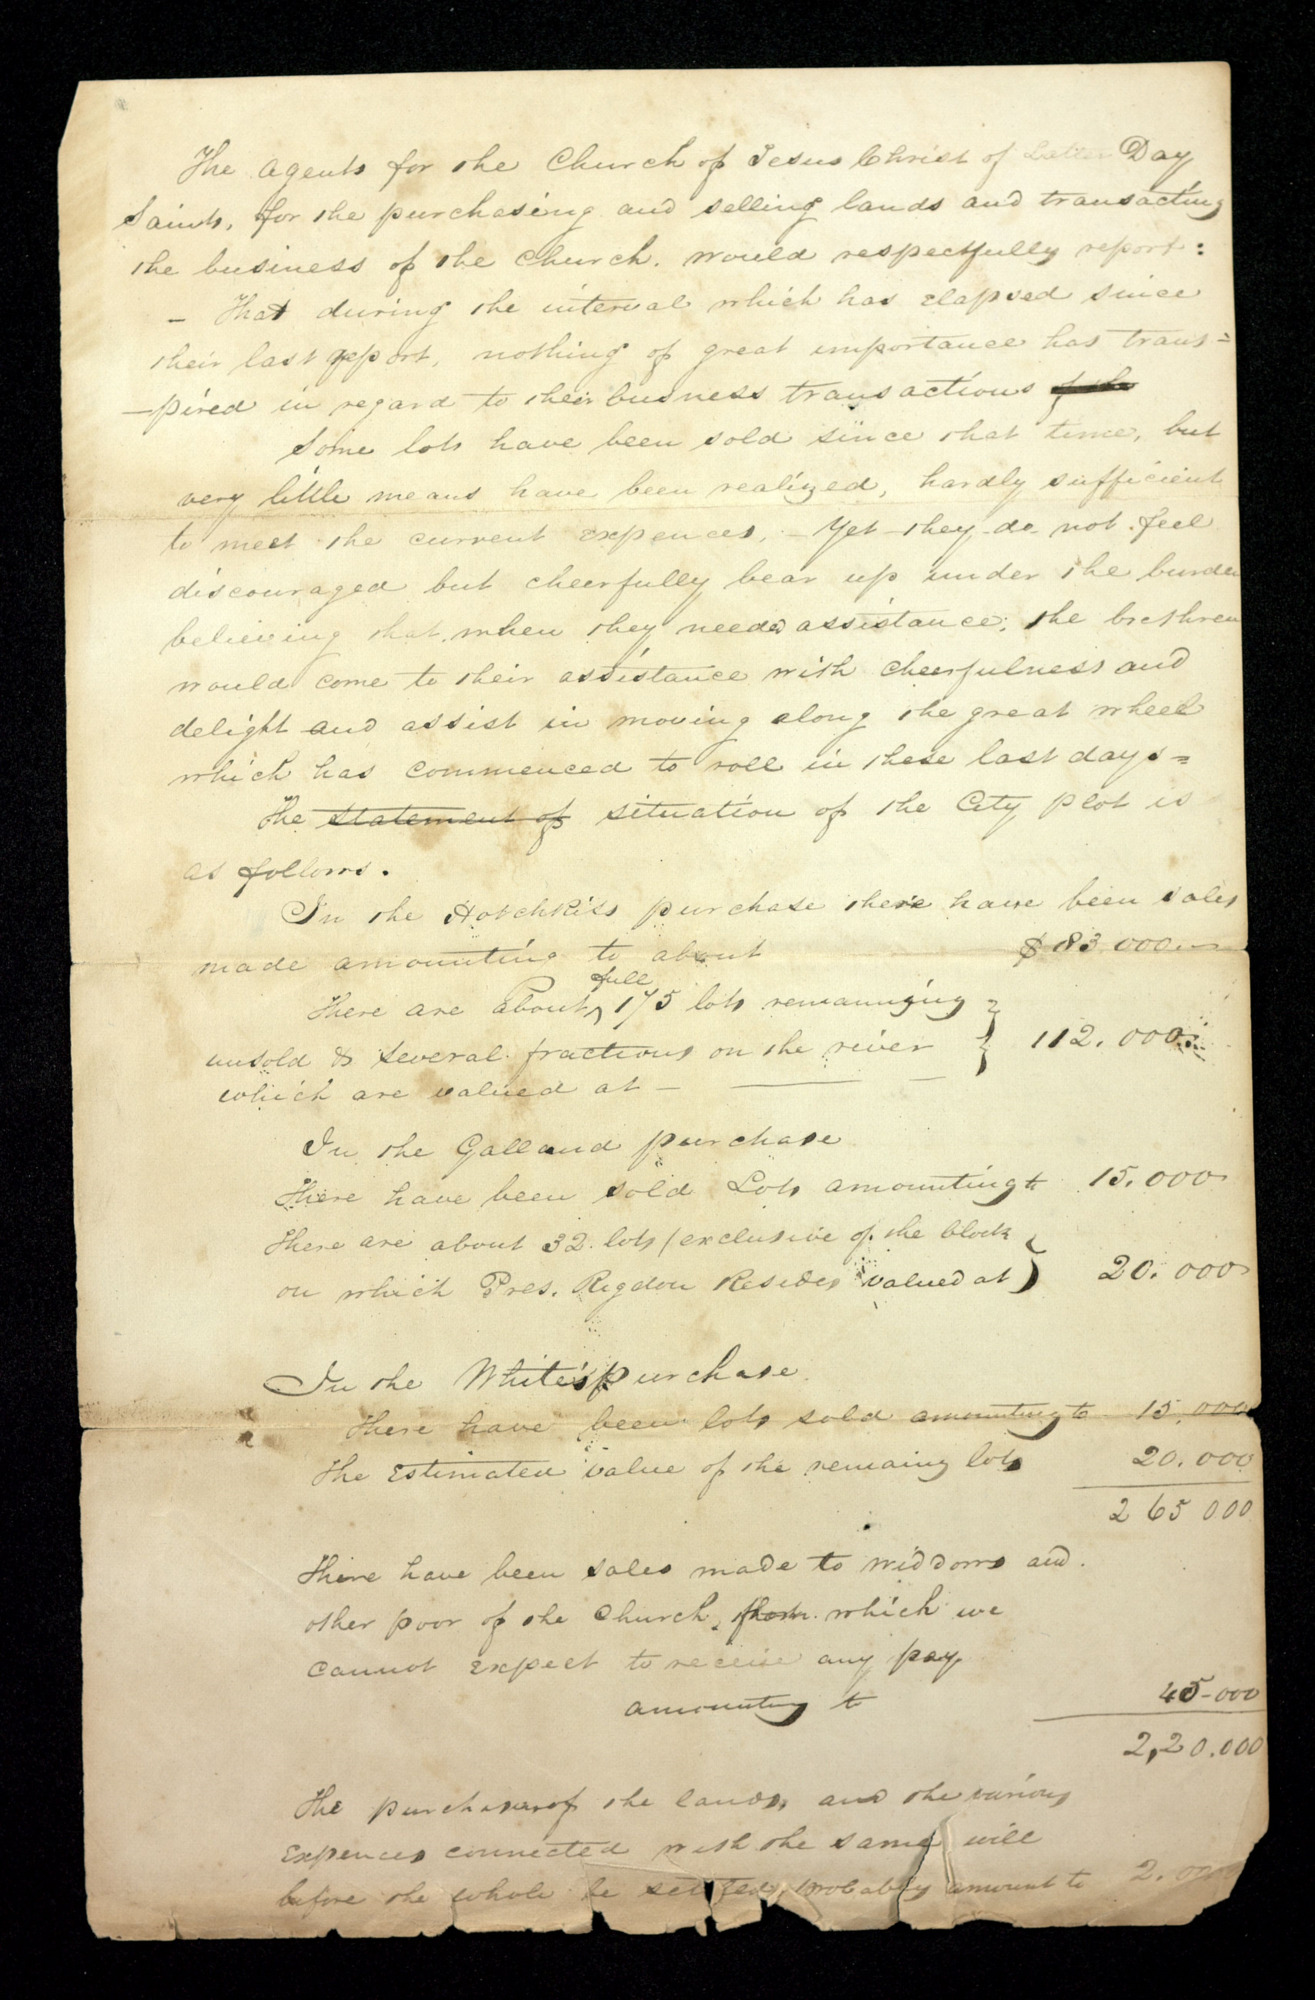 The agents for the Church of Jesus Christ of Latter Day
Saints, for the purchasing and selling lands and transacting
the business of the Church. would respectfully report:
- That during the interval which has elapsed since
their last report, nothing of great importance has trans=
-pired in regard to their business transactions
Some lots have been sold since that time, but
very little means have been realized, hardly sufficient
to meet the current expences, - Yet they do not feel
discouraged but cheerfully bear up under the burden
believing that when they needed assistance; the brethren
would come to their assistance with cheerfulness and
delight and assist in moving along the great wheel
which has commenced to roll in these last days=
The statement of situation of the City plot is
as follows.
In the Hotchkiss purchase there have been sales
made amounting to about $83.000
full
There are about 175 lots remaunging
unsold & several fractions on the river } 112.000
which are valued at -
In the Galland purchase
There have been sold Lots amounting to 15.000
There are about 32 lots (exclusive of the block
on which Pres. Rigdon Resides valued at } 20.000
In the White's purchase
There have been lots sold amounting to 15,000
The Estimated value of the remaing lots 20.000
265 000
There have been sales made to widdows and
other poor of the Church, which we
cannot expect to receive any pay
amounting to 45-000
2,20.000
The purchase of the lands, and the various
Expences connected with the same will
before the whole be settled, probably amount to